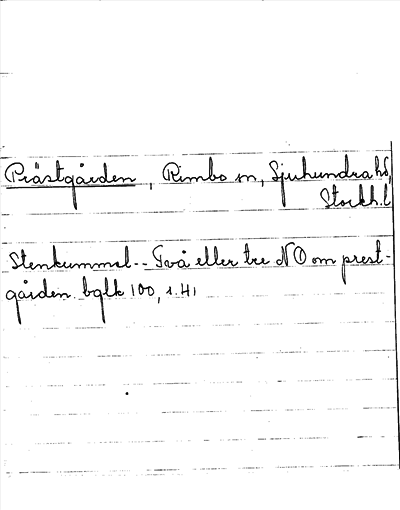 Prästgården, Rimbo sn, Sjuhundra hd,
Stockh. l
Stenkummel -- Två eller tre NO om prest-
gården. bglk 100, s. 41